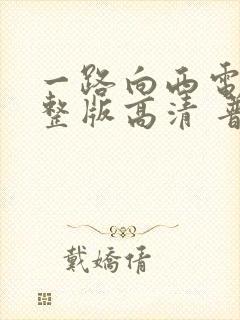 一路向西电
整版高清 普
戴嬌倩